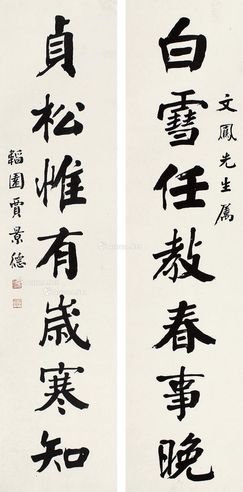 文鳳先生属
白雪任教春事晚
貞松惟有歲寒知
韜園賈景德